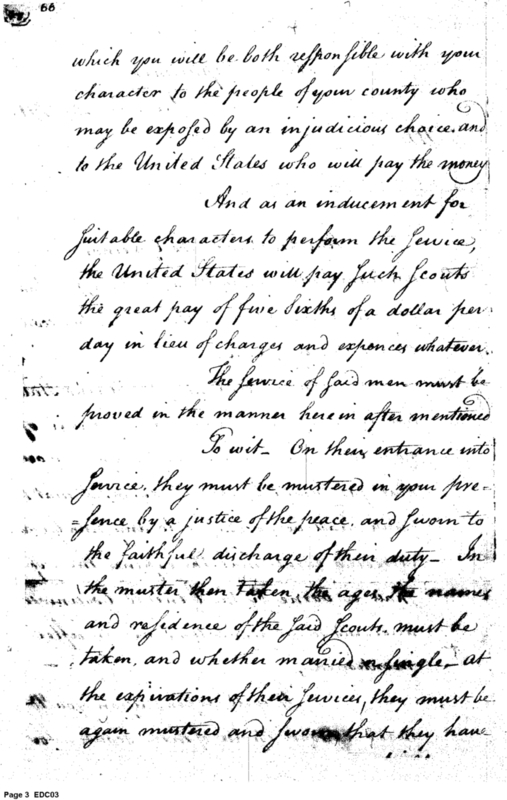 66
which you will be both responsible with your
character to the people of your county who
may be exposed by an injudicious choice, and
to the United States who will pay the money
And as an inducement for
suitable characters to perform the service,
the United States will pay such Scouts
the great pay of five sixths of a dollar per
day in lieu of charges and expences whatever.
The service of said men must be
proved in the manner herein after mentioned
To wit - On their entrance into
service, they must be mustered in your pre=
=sence by a justice of the peace, and sworn to
the faithful discharge of their duty - In
the muster then taken, the ages, the names
and residence of the said Scouts, must be
taken, and whether married or single - at
the expirations of their services, they must be
again mustered and sworn that they have
Page 3 EDC03